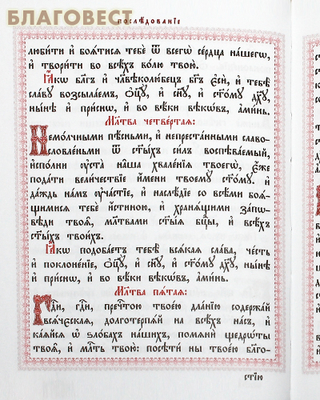 БЛАГОВЕСТ
послѣ́дованїе
люби́ти и҆ боѧ́тисѧ тебѐ ѿ всегѡ̀ се́рдца на́шегѡ,
и҆ твори́ти во всѣ́хъ во́лю твою̀.
Ꙗ҆́кѡ бл҃гъ и҆ чл҃вѣколю́бецъ бг҃ъ є҆сѝ, и҆ тебѣ̀
сла́ву возсыла́емъ, ѻ҆ц҃ꙋ̀, и҆ сн҃ꙋ, и҆ ст҃о́мꙋ дх҃ꙋ,
ны́нѣ и҆ при́снѡ, и҆ во вѣ́ки вѣкѡ́въ, а҆ми́нь.
Мл҃тва четве́ртаѧ:
Немо́лчными пѣ́сньми, и҆ непреста́нными славо-
сло́вленьми ѿ ст҃ы́хъ си́лъ воспѣва́емый,
и҆спо́лни ᲂу҆ста̀ на̑ша хвале́нїѧ твоегѡ̀, є҆́же
пода́ти вели́чествїе и҆́мени твоемꙋ̀ ст҃о́мꙋ. и҆
да́ждь на́мъ ᲂу҆ча́стїе, и҆ наслѣ́дїе со всѣ́ми боѧ́-
щимисѧ тебѐ и҆́стиною, и҆ хранѧ́щими за́повѣ-
ди твоѧ̑, мл҃твами ст҃ы́ѧ бц҃ы, и҆ всѣ́хъ
ст҃ы́хъ твои́хъ.
Ꙗ҆́кѡ подоба́етъ тебѣ̀ всѧ́каѧ сла́ва, че́сть
и҆ поклоне́нїе, ѻ҆ц҃ꙋ̀, и҆ сн҃ꙋ, и҆ ст҃о́мꙋ дх҃ꙋ, ны́нѣ
и҆ при́снѡ, и҆ во вѣ́ки вѣкѡ́въ, а҆ми́нь.
Мл҃тва пѧ́таѧ:
Гд҇и, гд҇и, пречⷭ҇тою твое́ю дла́нїю содержа́й
всѧ́чєскаѧ, долготерпѧ́й на всѣ́хъ на́съ, и҆
ка́ѧйсѧ ѡ҆ ѕло́бахъ на́шихъ, помѧнѝ щедрѡ́ты
твоѧ̑, и҆ мл҃ть твою̀: посѣтѝ ны̀ твое́ю бл҃го-
стїю